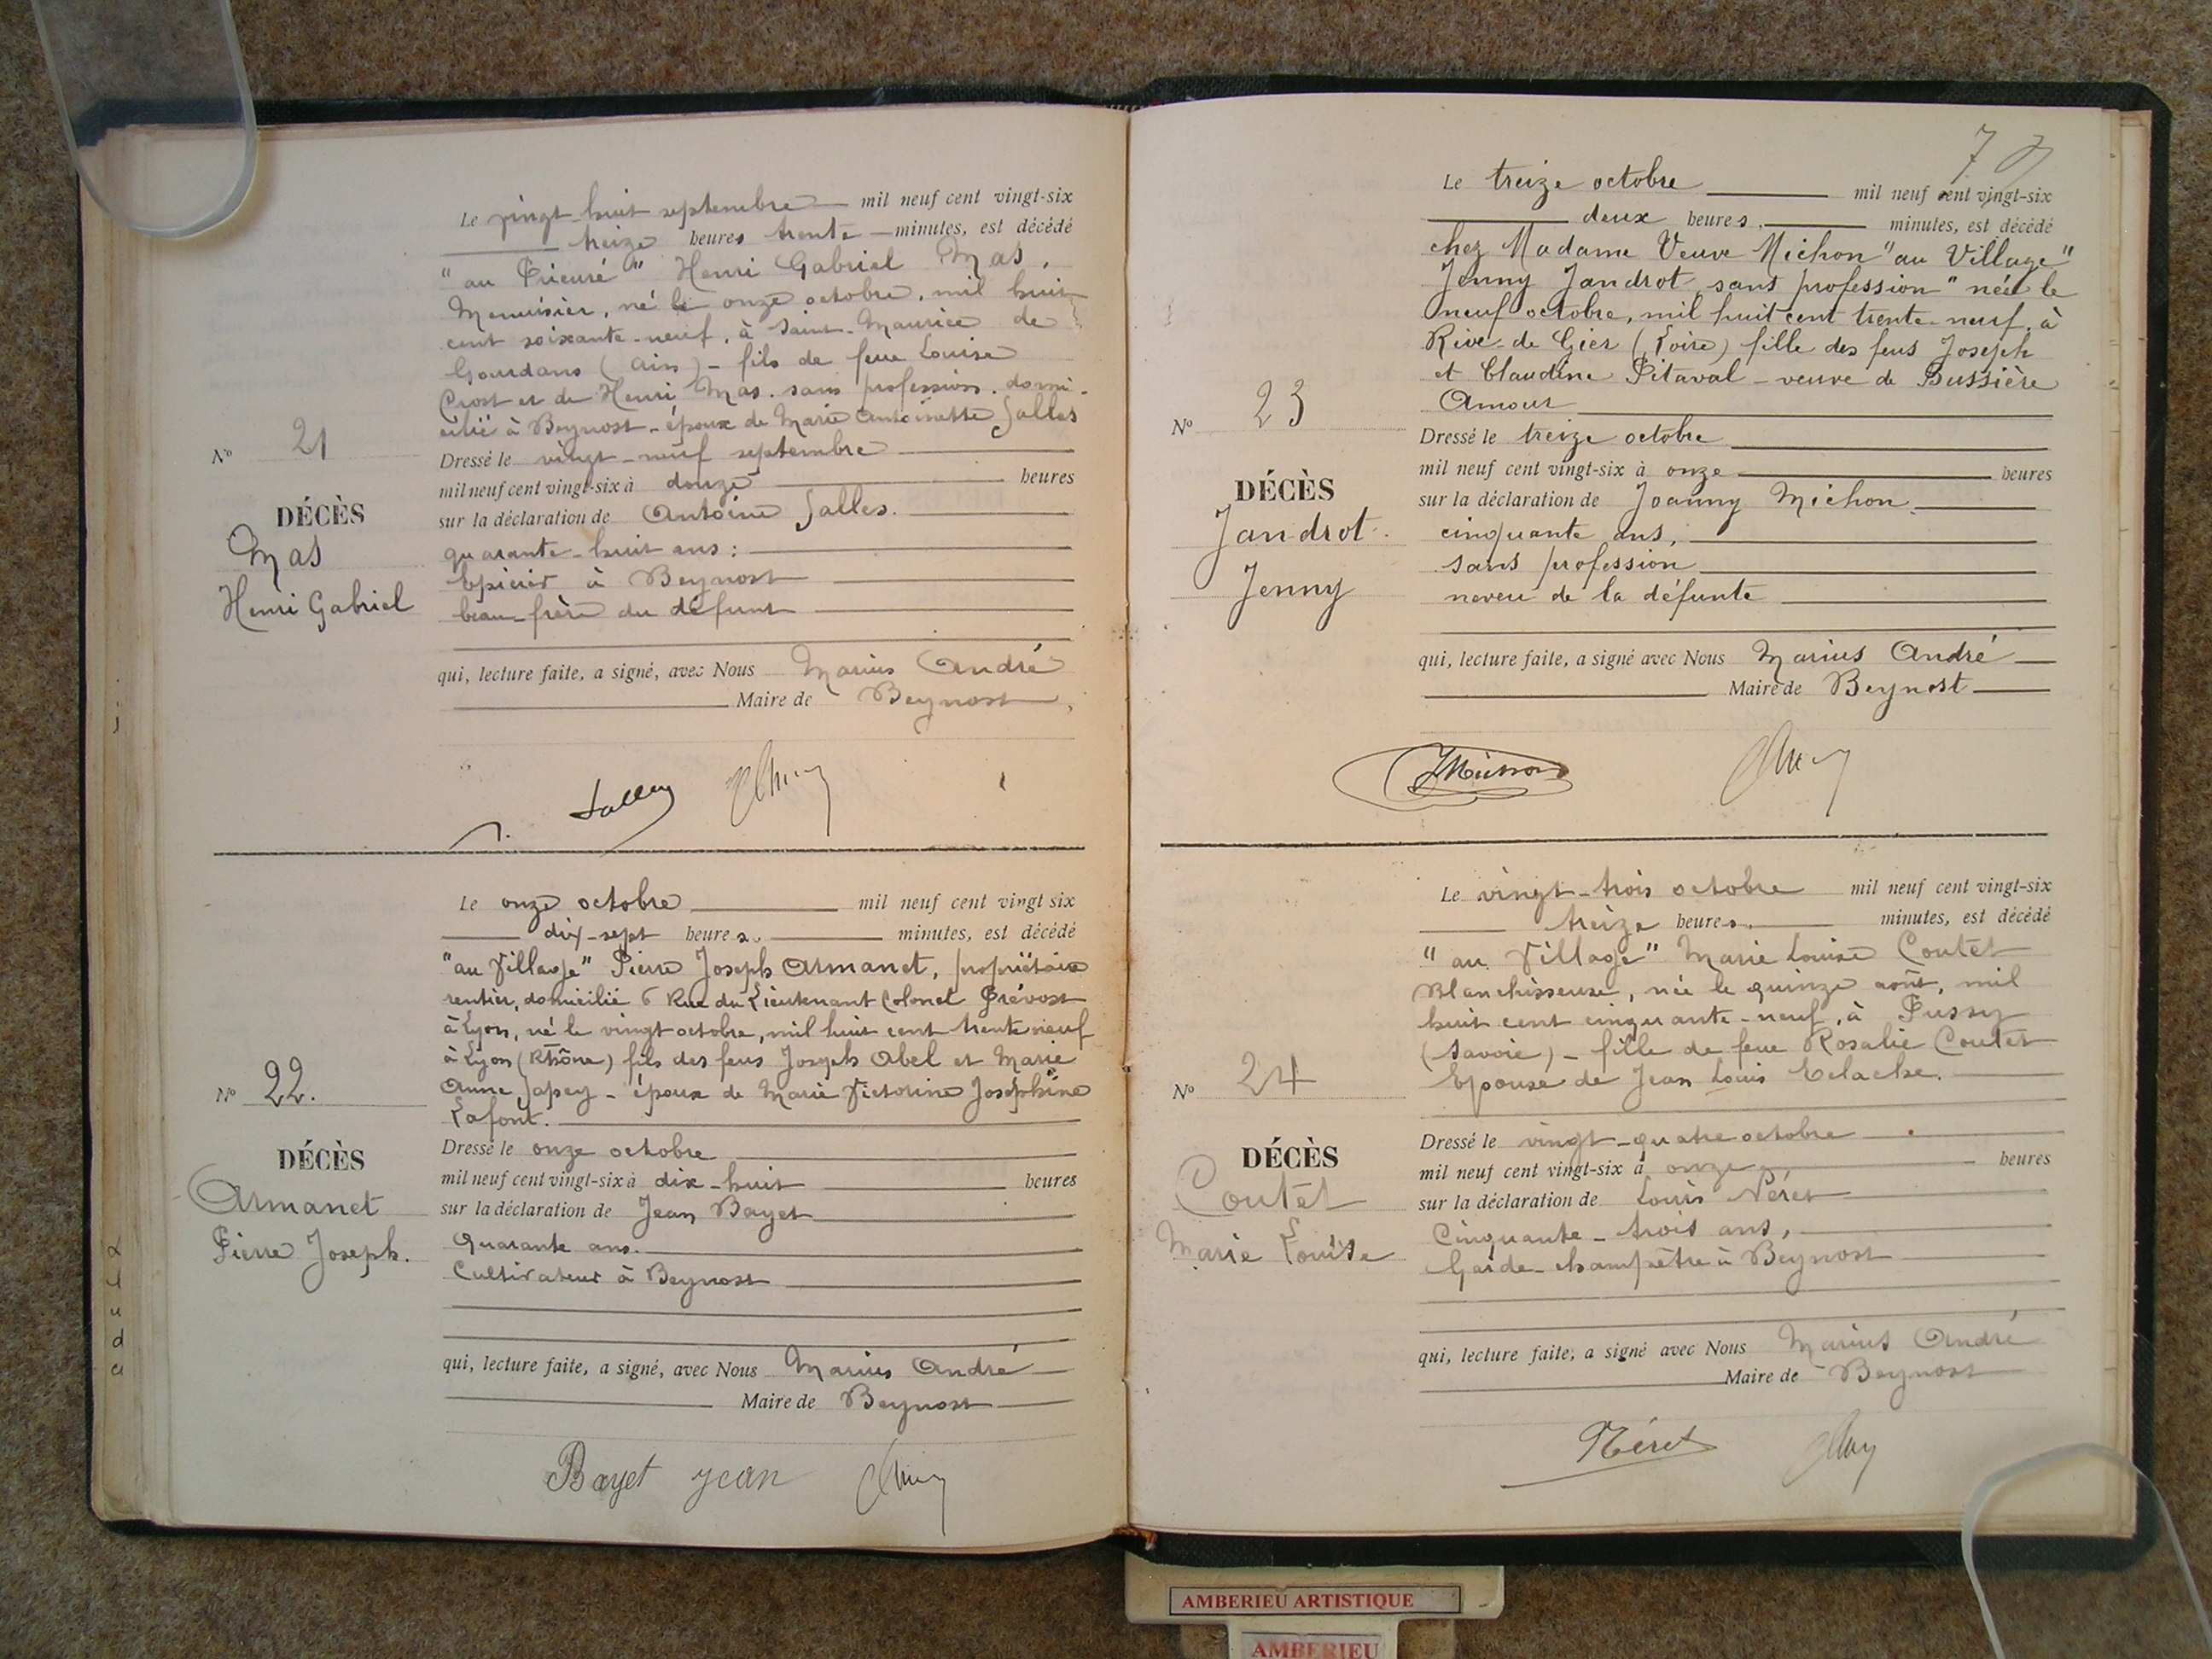 Le vingt-huit septembre mil neuf cent vingt-six
treize heures trente minutes, est décédé
"au Prieuré" Henri Gabriel Mas,
Menuisier, né le onze octobre, mil huit
cent soixante-neuf, à Saint-Maurice de
Gourdans (Ain) - fils de feue Louise
Crost et de Henri Mas. sans profession. domi-
cilié à Beynost - époux de Marie Antoinette Salles
N° 21
DÉCÈS
Mas
Henri Gabriel
Dressé le vingt-neuf septembre
mil neuf cent vingt-six à douze heures
sur la déclaration de Antoine Salles.
quarante-huit ans :
Epicier à Beynost
beau-frère du défunt
qui, lecture faite, a signé, avec Nous Marius André
Maire de Beynost,
Salles
Le onze octobre mil neuf cent vingt six
dix-sept heures. minutes, est décédé
"au Village" Pierre Joseph Armanet, propriétaire
rentier, domicilié 6 Rue du Lieutenant Colonel Prévost
à Lyon, né le vingt octobre, mil huit cent trente neuf
à Lyon (Rhône) fils des feus Joseph Abel et Marie
Anne Sapey - époux de Marie Victorine Joséphine
Lafont.
N° 22.
DÉCÈS
Armanet
Pierre Joseph.
Dressé le onze octobre
mil neuf cent vingt-six à dix-huit heures
sur la déclaration de Jean Bayet
Quarante ans.
Cultivateur à Beynost
qui, lecture faite, a signé, avec Nous Marius André
Maire de Beynost
Bayet jean
7
Le treize octobre mil neuf cent vingt-six
deux heures. minutes, est décédé
chez Madame Veuve Michon "au Village"
Jenny Jandrot, sans profession" née le
neuf octobre, mil huit cent trente-neuf, à
Rive-de-Gier (Loire) fille des feus Joseph
et Claudine Pitaval - veuve de Bussière
Amour
N° 23
DÉCÈS
Jandrot.
Jenny
Dressé le treize octobre
mil neuf cent vingt-six à onze heures
sur la déclaration de Joanny Michon
cinquante ans,
sans profession
neveu de la défunte
qui, lecture faite, a signé avec Nous Marius André
Maire de Beynost
JMichon
Le vingt-trois octobre mil neuf cent vingt-six
treize heures. minutes, est décédé
"au Village" Marie Louise Coutet
Blanchisseuse, née le quinze août, mil
huit cent cinquante-neuf, à Pussy
(Savoie) - fille de feue Rosalie Coutet
Epouse de Jean Louis Eclache.
N° 24
DÉCÈS
Coutet
Marie Louise
Dressé le vingt-quatre octobre
mil neuf cent vingt-six à onze heures
sur la déclaration de Louis Néret
Cinquante-trois ans,
Garde-champêtre à Beynost
qui, lecture faite, a signé avec Nous Marius André
Maire de Beynost
Néret
AMBERIEU ARTISTIQUE
AMBERIEU